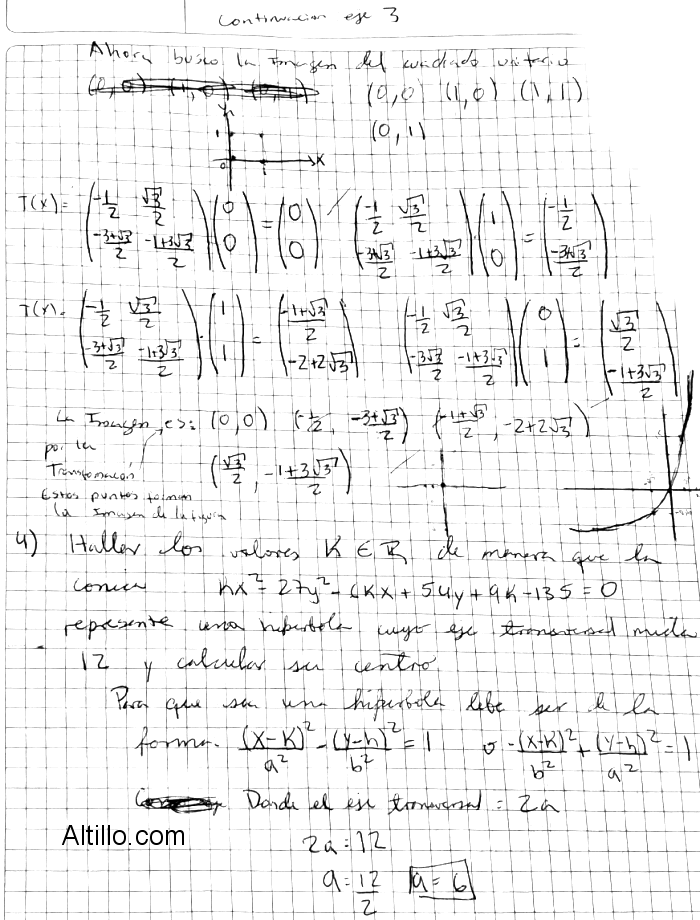 Continuacion eje 3
Ahora busco la Imagen del cuadrado unitario
(0,0) (1,0) (1,1)
(0,1)
y
1
0 1 x
T(x) = (-1/2 √3/2; -3+√3/2 -1+3√3/2) · (0; 0) = (0; 0) (-1/2 √3/2; -3+√3/2 -1+3√3/2) · (1; 0) = (-1/2; -3+√3/2)
T(x) = (-1/2 √3/2; -3+√3/2 -1+3√3/2) · (1; 1) = (-1+√3/2; -2+2√3) (-1/2 √3/2; -3+√3/2 -1+3√3/2) (0; 1) = (√3/2; -1+3√3/2)
La Imagen es: (0,0) (-1/2, -3+√3/2) (-1+√3/2, -2+2√3)
por la
Transformación (√3/2, -1+3√3/2)
Estos puntos forman
la Imagen de la figura
4) Hallar los valores K ∈ R de manera que la
conica kx² - 27y² - 6kx + 54y + 9k - 135 = 0
represente una hiperbola cuyo eje transversal mida
12 y calcular su centro
Para que sea una hiperbola debe ser de la
forma. (x-k)²/a² - (y-h)²/b² = 1 o -(x-k)²/b² + (y-h)²/a² = 1
Donde el eje transversal = 2a
2a = 12
a = 12/2 a = 6
Altillo.com